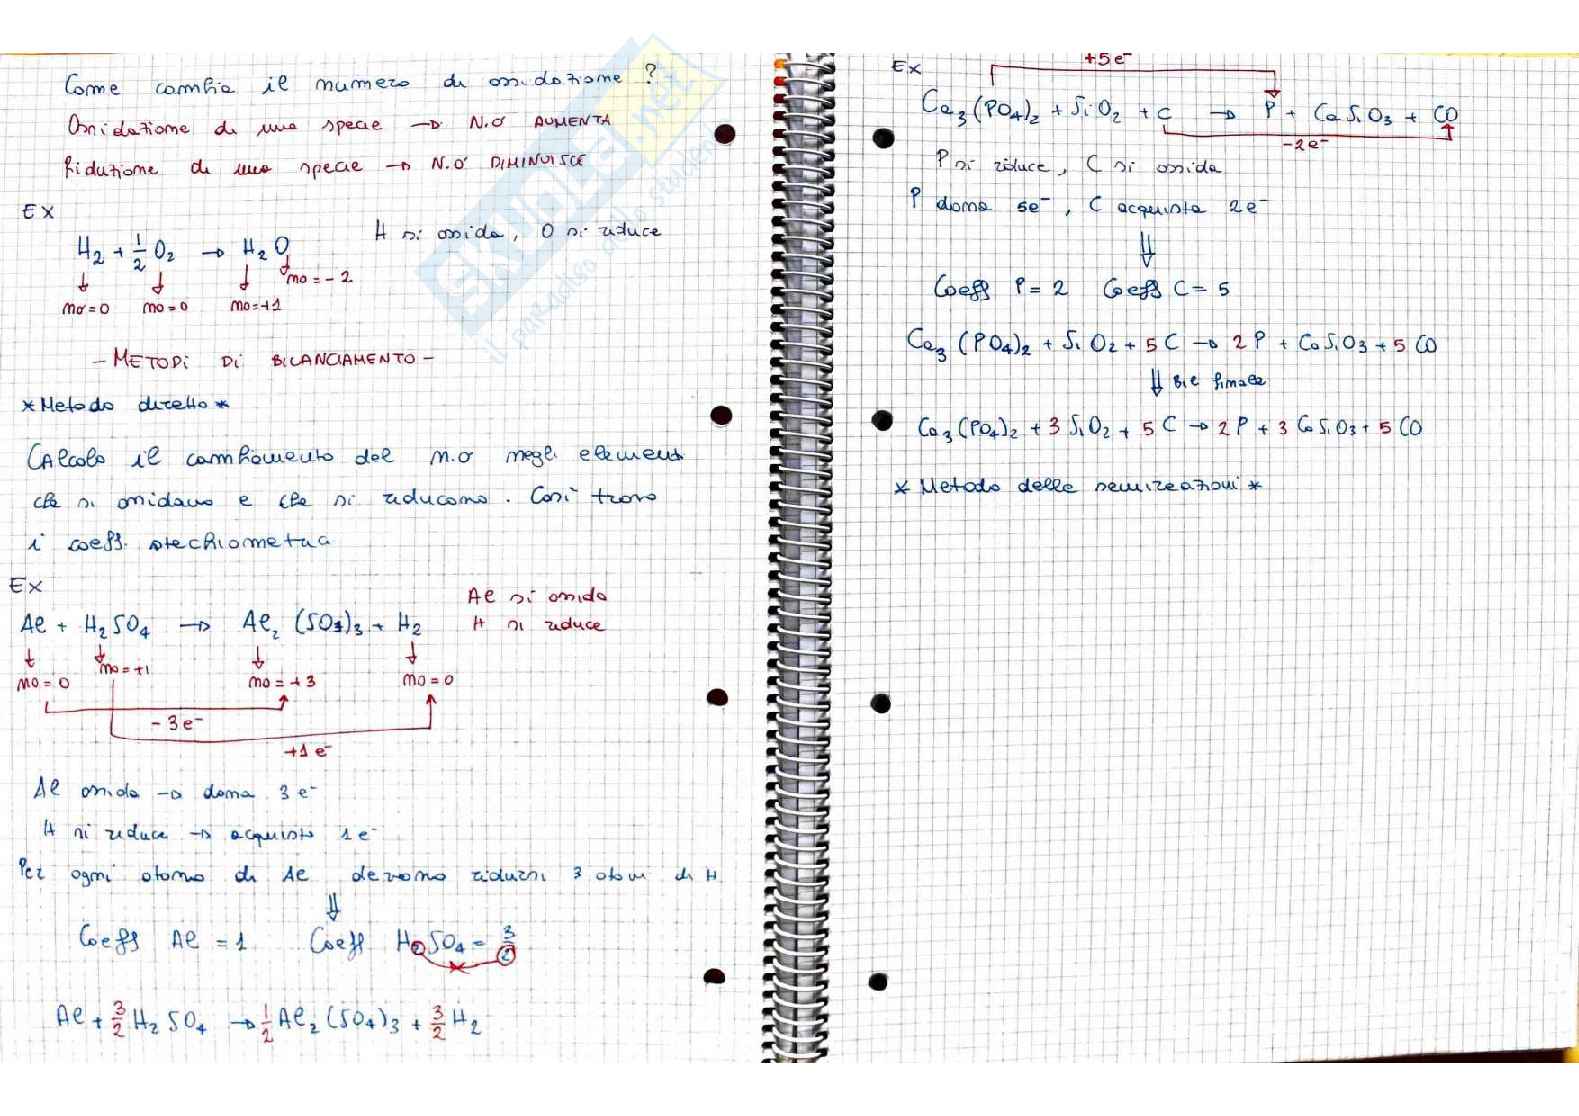 Come cambia il numero di ossidazione ?
Ossidazione di una specie → N.O AUMENTA
Riduzione di una specie → N.O DIMINUISCE
EX
H₂ + 1/2 O₂ → H₂O
H si ossida, O si riduce
no=0 no=0 no=+1 no=-2
- METODI DI BILANCIAMENTO -
* Metodo diretto *
CAlcolo il cambiamento del n.o negli elementi
che si ossidano e che si riducono. Così trovo
i coeff. stechiometrici
EX
Al + H₂SO₄ → Al₂(SO₄)₃ + H₂
Al si ossida
H si riduce
no=0 no=+1 no=+3 no=0
-3e⁻
+1e⁻
Al ossida → dona 3e⁻
H si riduce → acquista 1e⁻
Per ogni atomo di Al devono ridursi 3 atomi di H
⇓
Coeff Al = 1 Coeff H₂SO₄ = 3/2
Al + 3/2 H₂SO₄ → 1/2 Al₂(SO₄)₃ + 3/2 H₂
EX
+5e⁻
Ca₃(PO₄)₂ + SiO₂ + C → P + CaSiO₃ + CO
-2e⁻
P si riduce, C si ossida
P dona 5e⁻, C acquista 2e⁻
⇓
Coeff P = 2 Coeff C = 5
Ca₃(PO₄)₂ + SiO₂ + 5C → 2P + CaSiO₃ + 5CO
⇓ Bil finale
Ca₃(PO₄)₂ + 3SiO₂ + 5C → 2P + 3CaSiO₃ + 5CO
* Metodo delle semireazioni *
SKUOLA.net
il paradiso dello studente